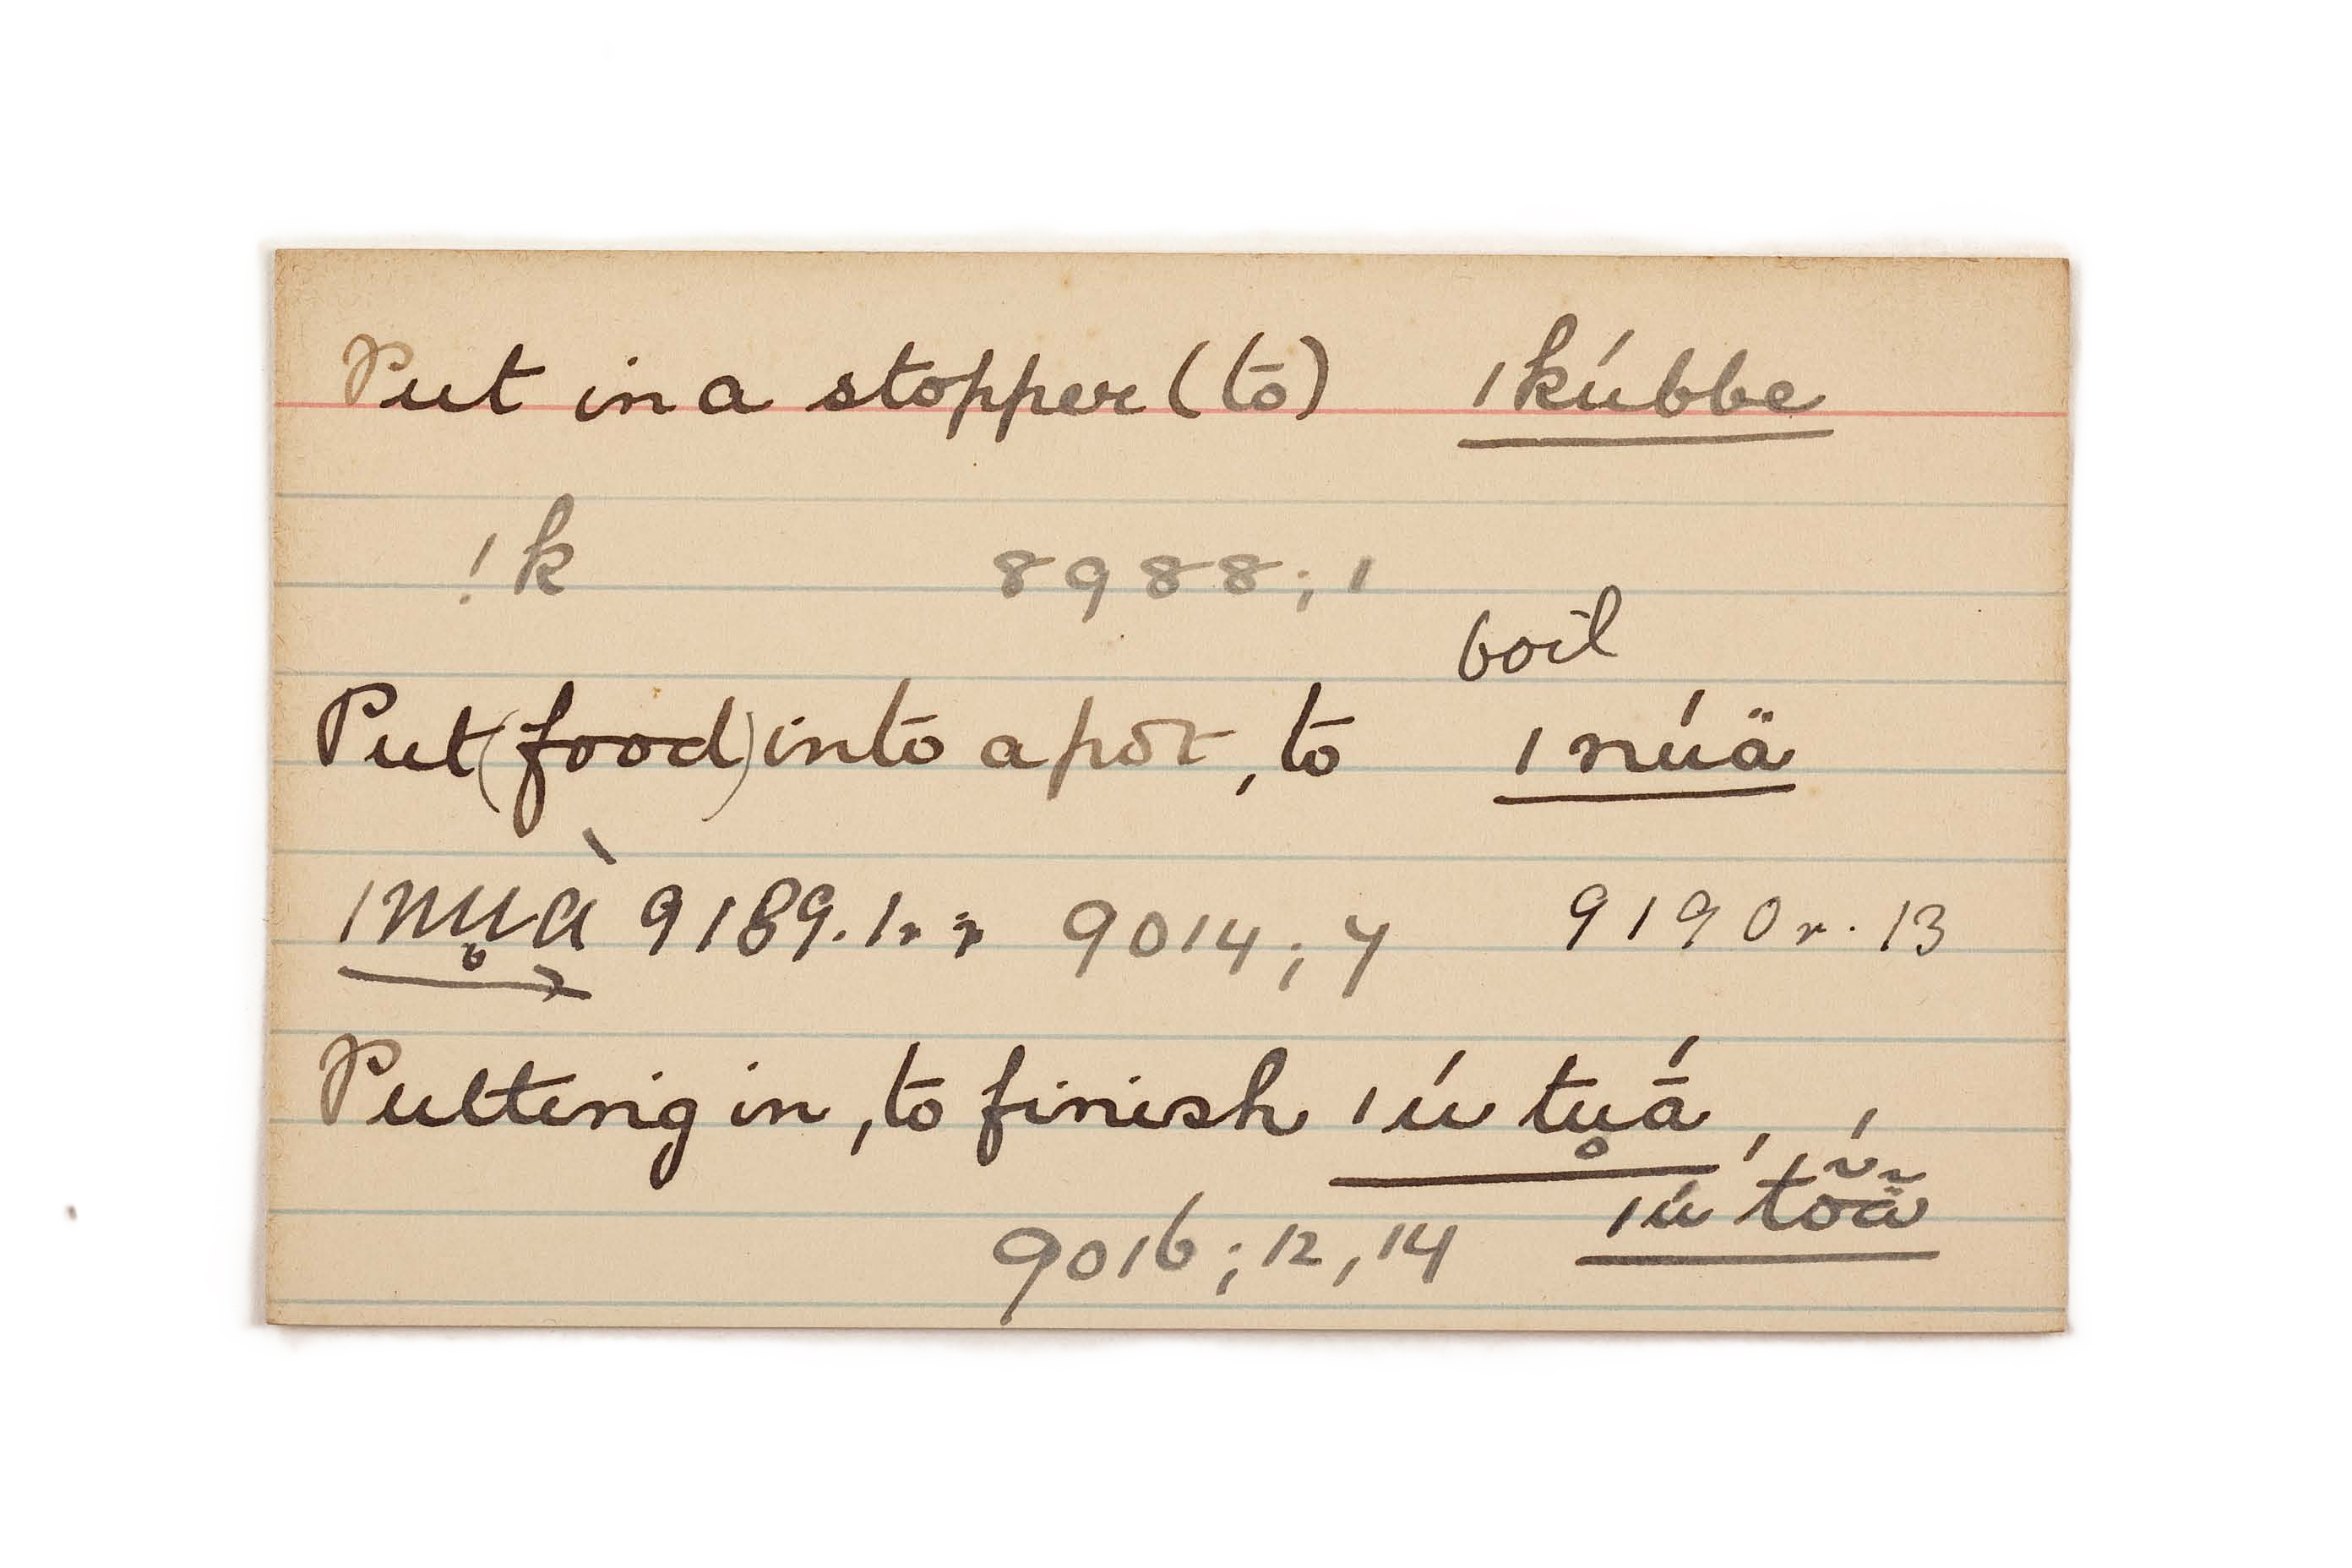 Put in a stopper (to) ǀkúbbe
!k 8988; 1
boil
Put (food) into a pot, to ǀnúä
ǀnu̥à 9189. 9014; 7 9190 r. 13
Putting in, to finish ǀú tu̥ā́,
ǀú tõä̃
9016; 12, 14